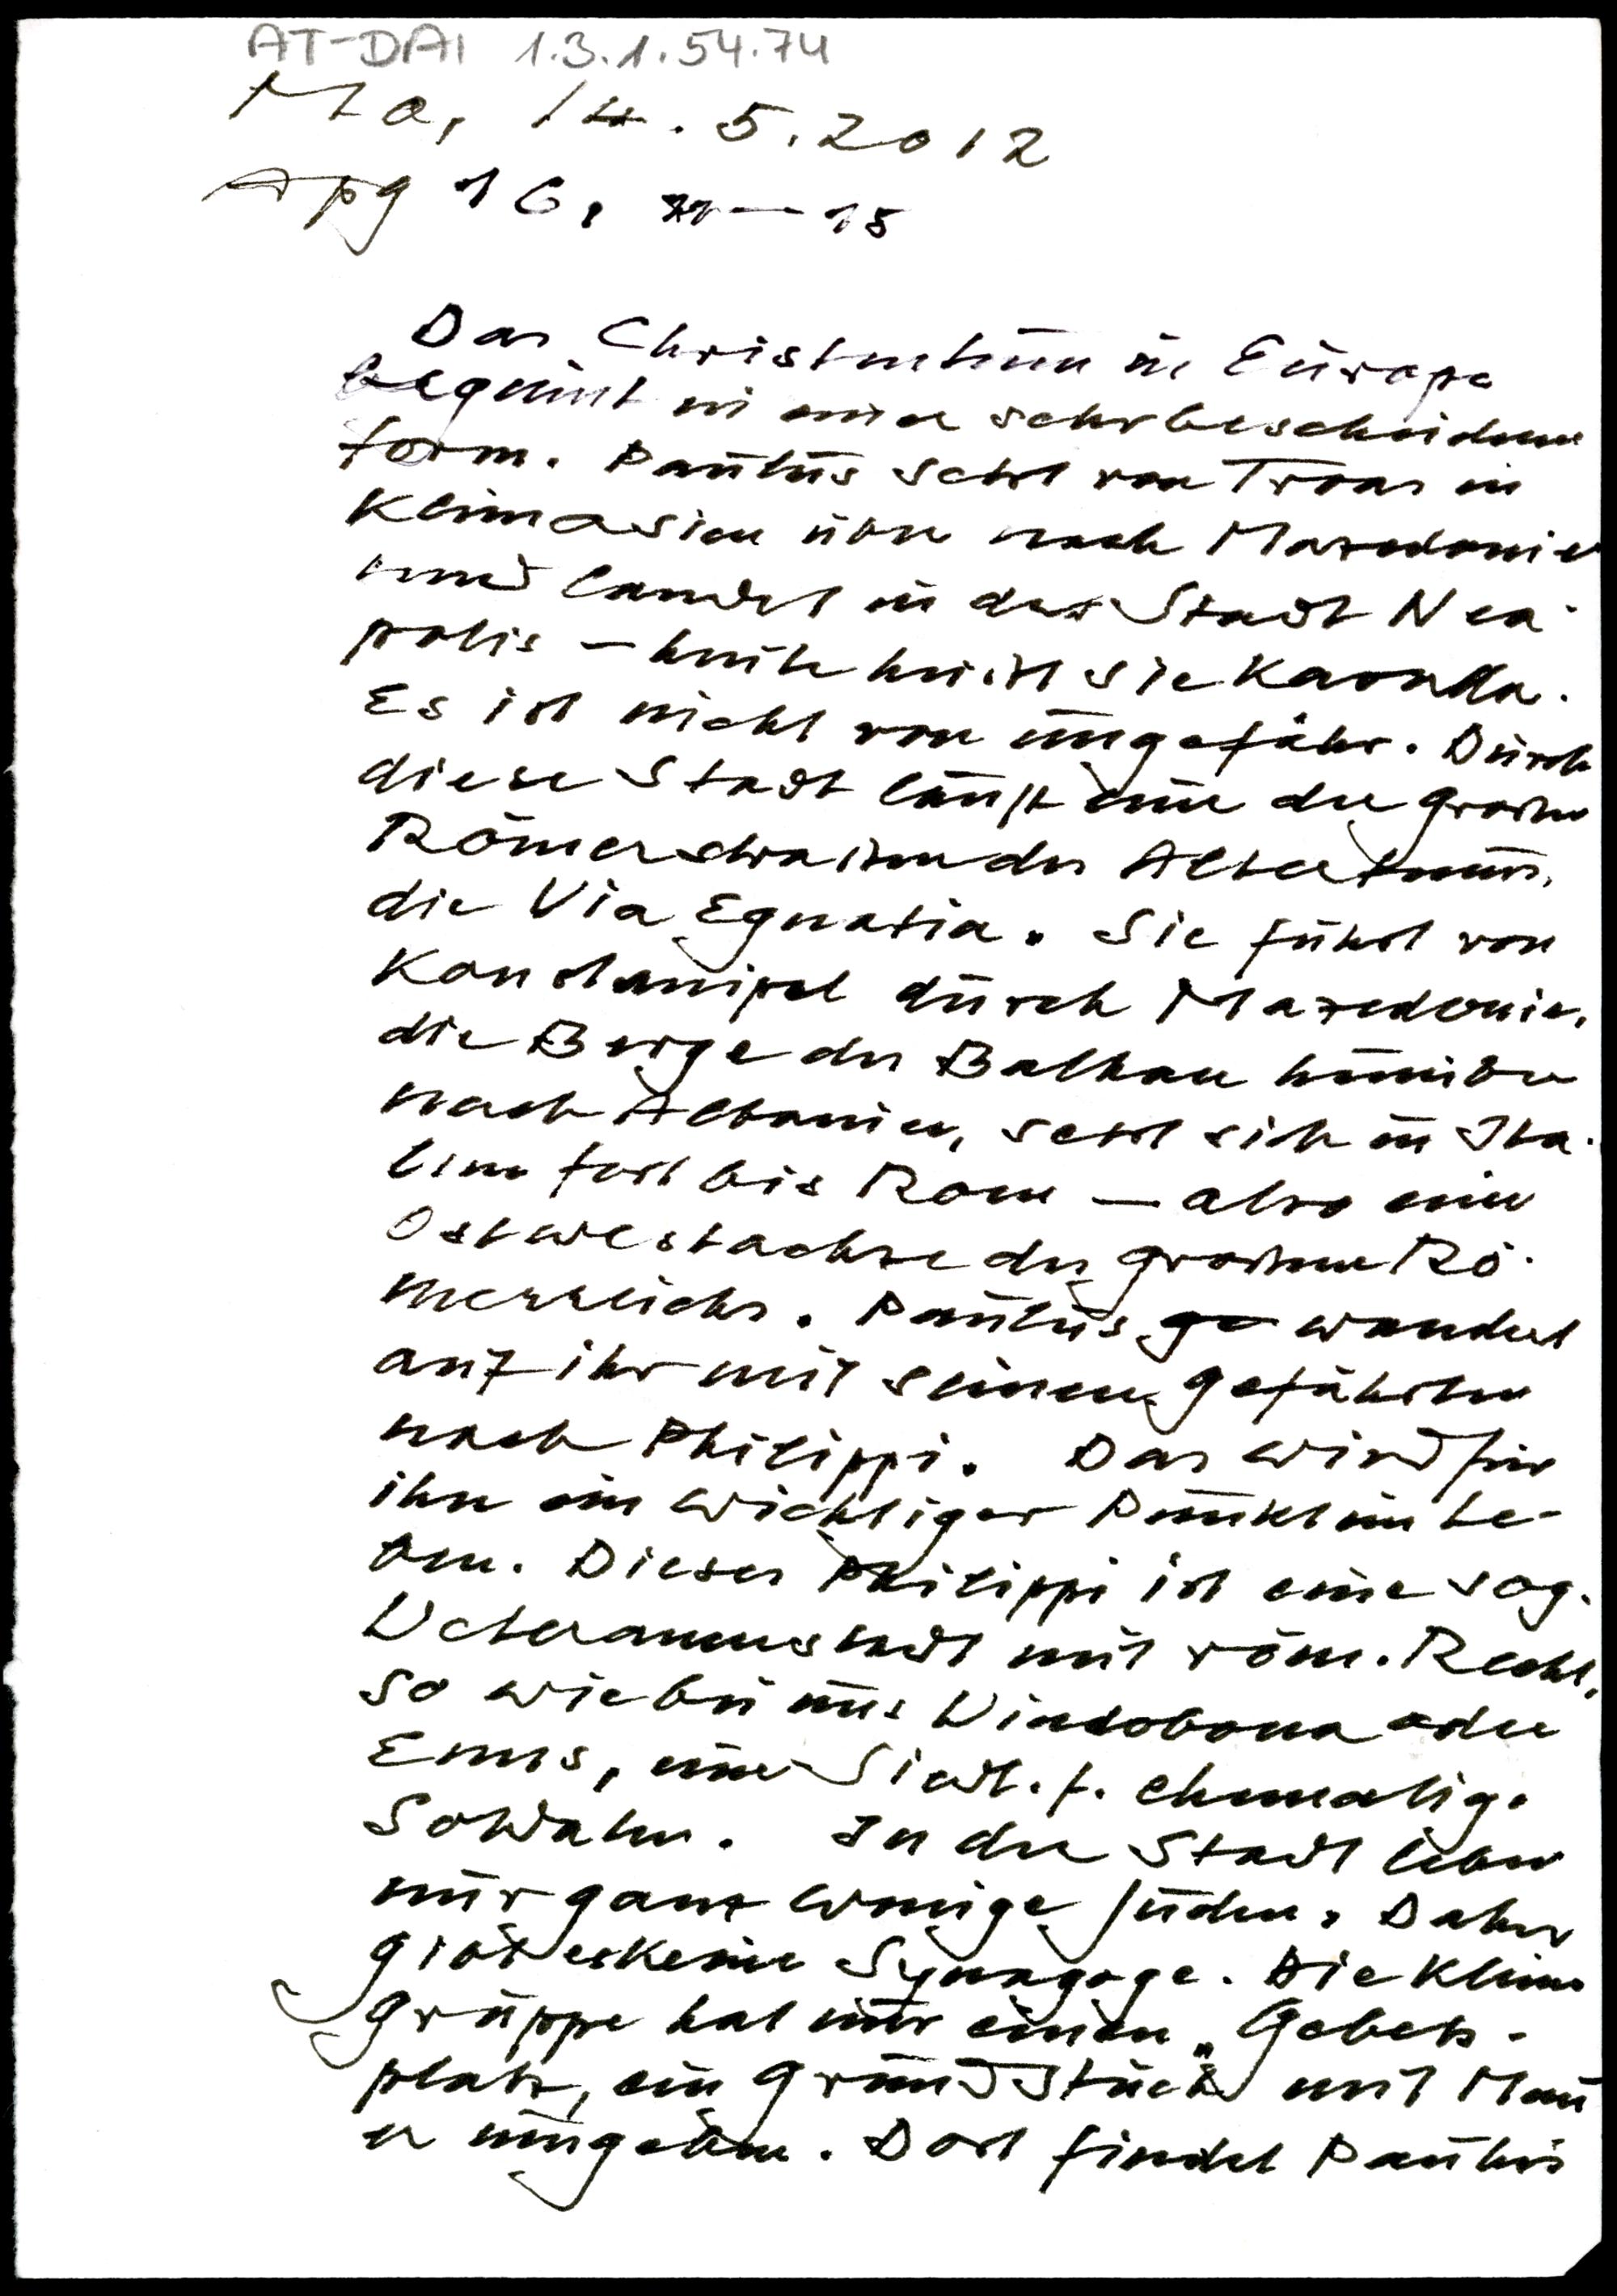 AT-DAI 1.3.1.54.74
Mo, 14.5.2012
Apg 16, 11—15
Das Christentum in Europa
beginnt in einer sehr bescheidenen
Form. Paulus setzt von Troas in
Kleinasien über nach Mazedonien
und landet in der Stadt Nea-
polis – heute heißt sie Kavalla.
Es ist nicht von ungefähr. Durch
diese Stadt läuft eine der großen
Römerstraßen des Altertums,
die Via Egnatia. Sie führt von
Konstanipel durch Mazedonien,
die Berge des Balkan hinüber
nach Albanien, setzt sich in Ita-
lien fort bis Rom – also eine
Ostwestachse des großen Rö-
merreichs. Paulus ge wandert
auf ihr mit seinen Gefährten
nach Philippi. Das wird für
ihn ein wichtiger Punkt im Le-
ben. Dieses Philippi ist eine sog.
Veteranenstadt mit röm. Recht,
so wie bei uns Vindobona oder
Enns, eine Siedl. f. ehemalige
Soldaten. In der Stadt leben
nur ganz wenige Juden. Daher
gibt es keine Synagoge. Die kleine
Gruppe hat nur einen „Gebets-
platz", ein Grundstück mit Mau
er umgeben. Dort findet Paulus